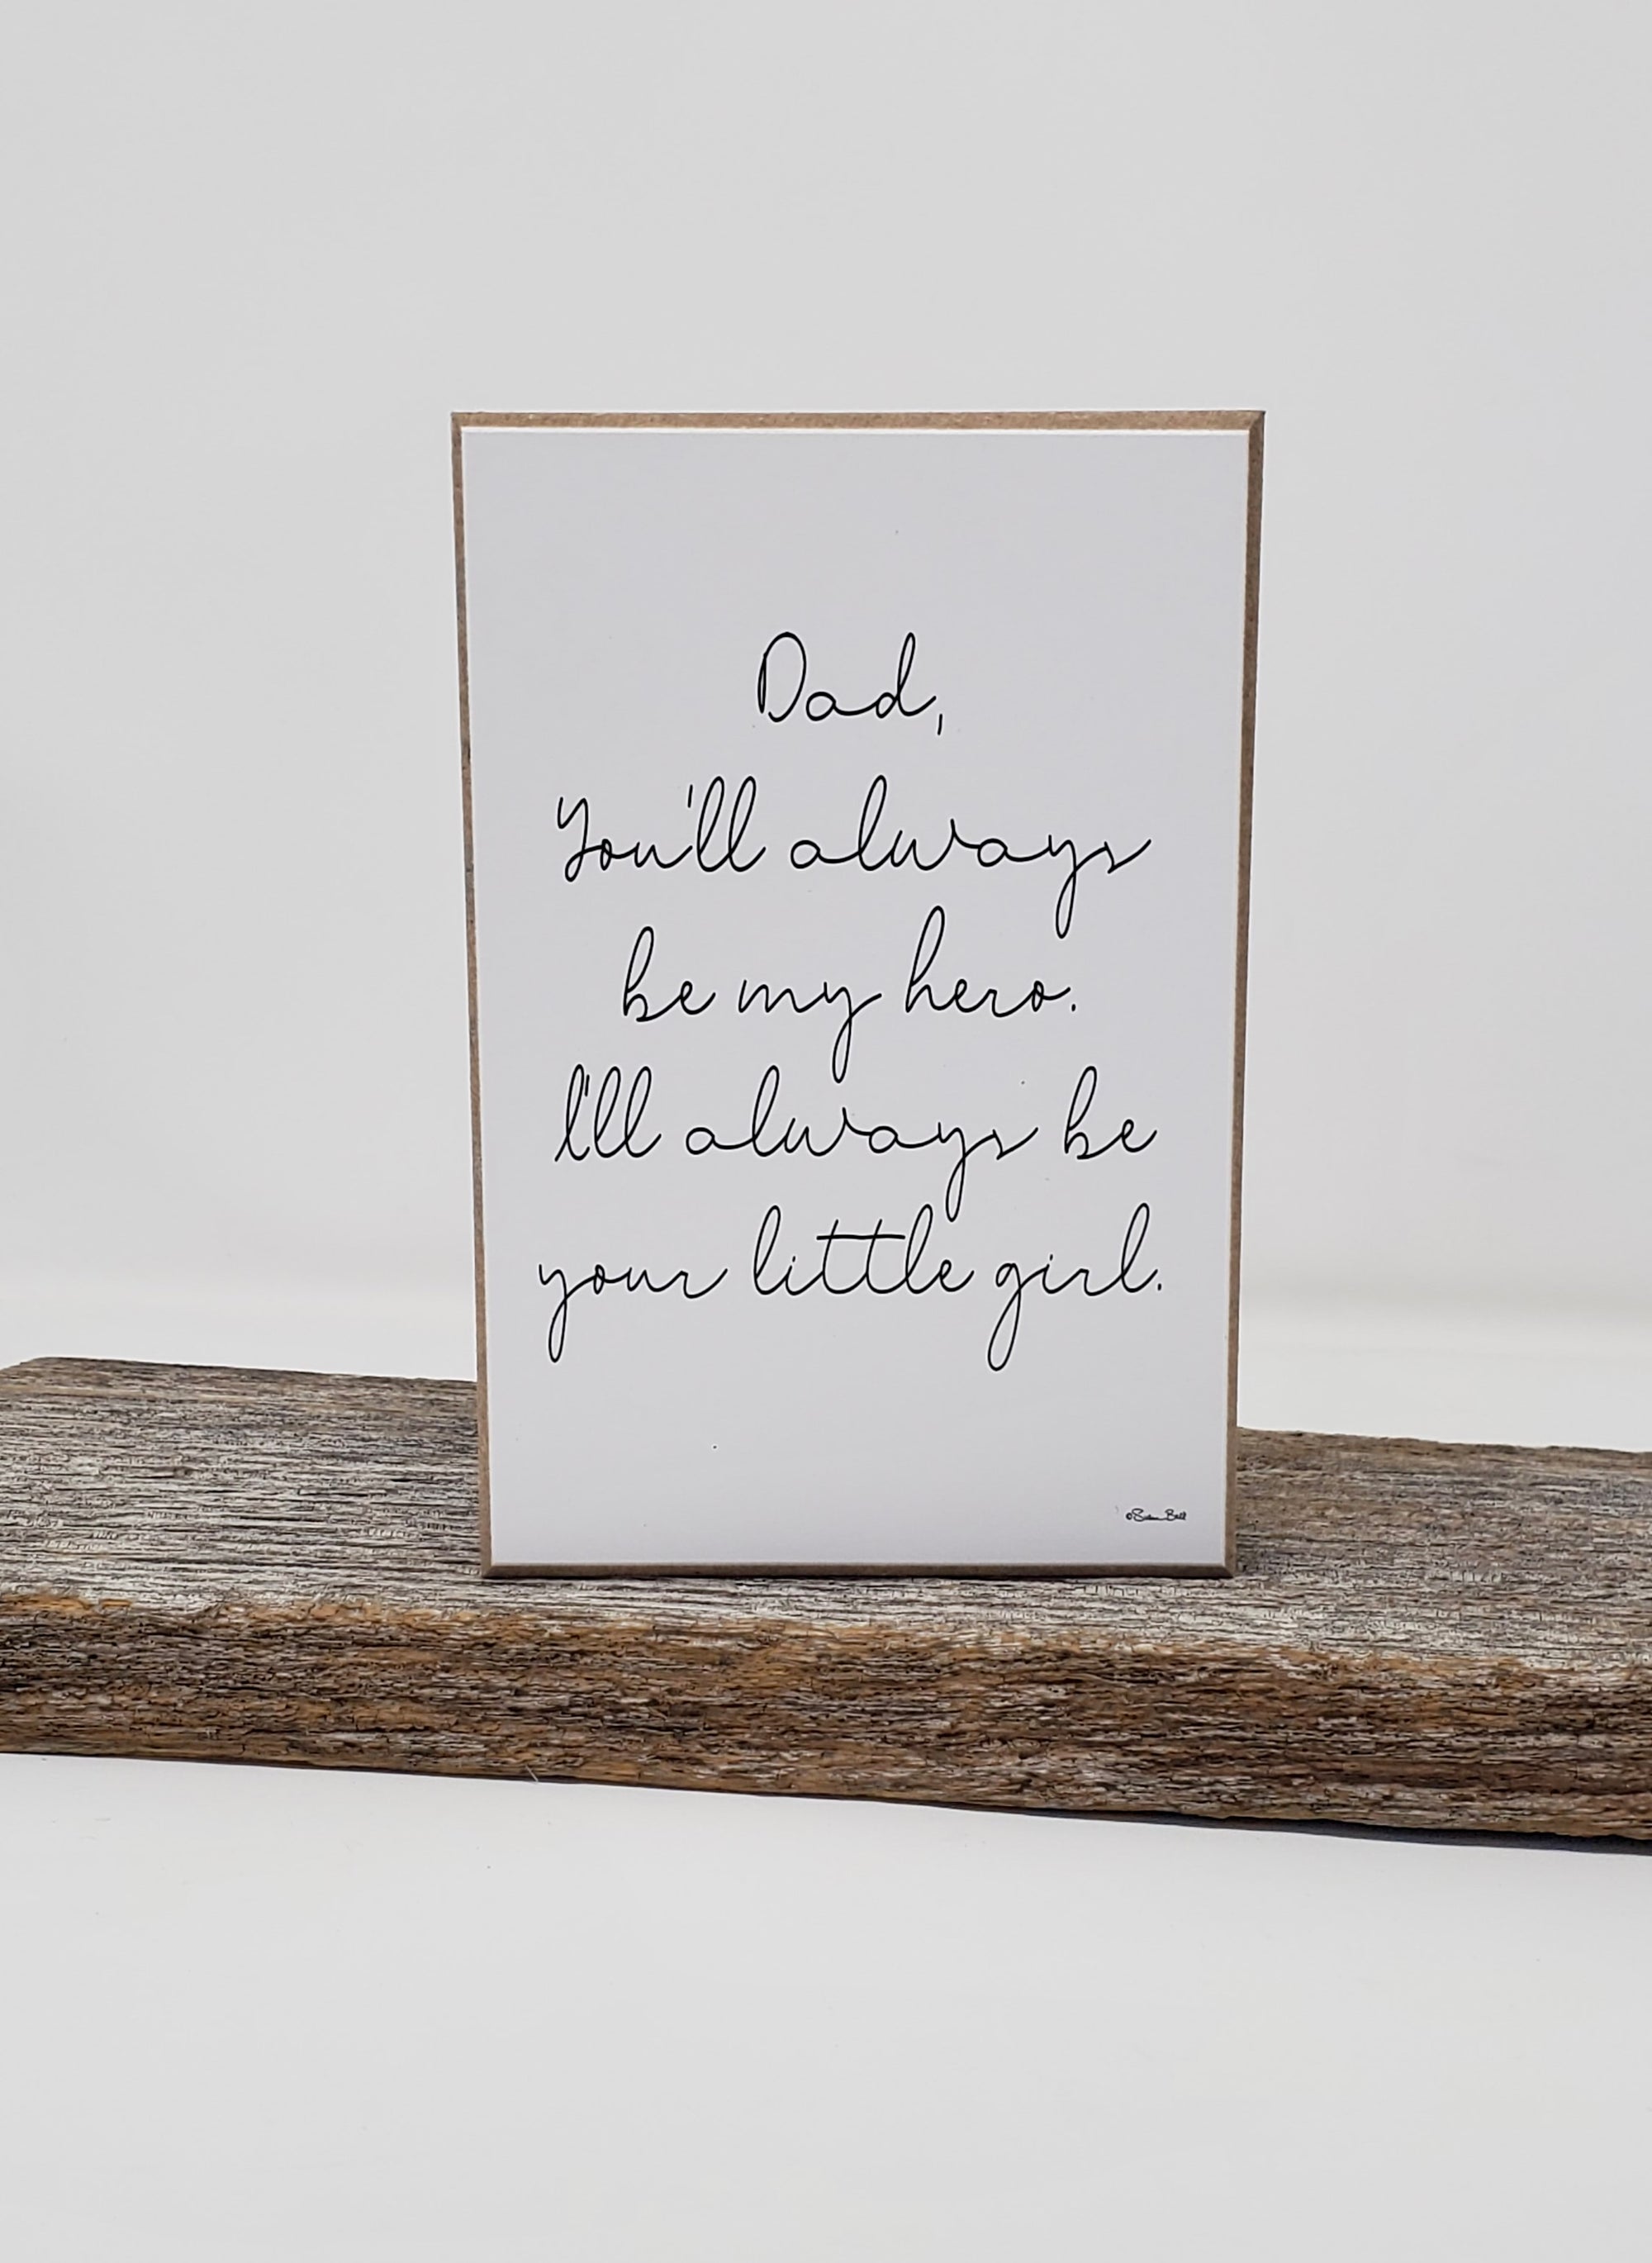 Dad,
You'll always
be my hero.
I'll always be
your little girl.
©Susan Ball